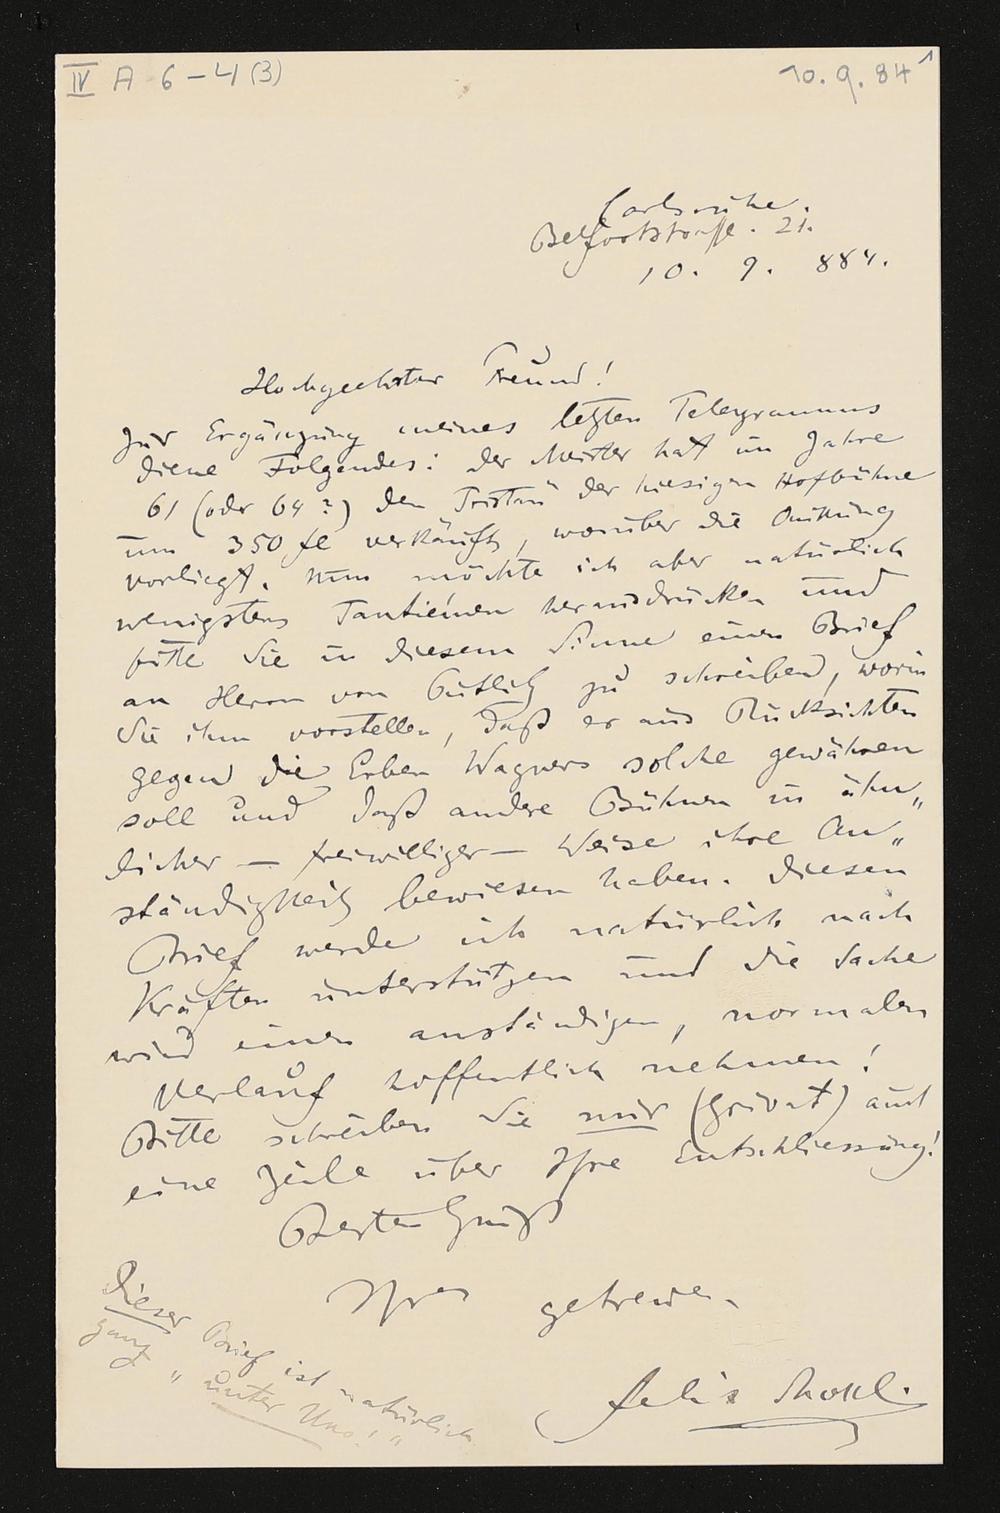 IV A 6-4 (3)
10. 9. 84
1
Carlsruhe.
Belfortstrasse. 21.
10. 9. 884.
Hochgeehrter Freund!
Zur Ergänzung meines letzten Telegramms
diene Folgendes: der Meister hat im Jahre
61 (oder 64?) den Tristan der hiesigen Hofbühne
um 350 fl verkauft, worüber die Quittung
vorliegt. Nun möchte ich aber natürlich
wenigstens Tantièmen herausdrücken und
bitte Sie in diesem Sinne einen Brief
an Herrn von Putlitz zu schreiben, worin
Sie ihm vorstellen, daß er aus Rücksichten
gegen die Erben Wagners solche gewähren
soll und daß andere Bühnen in ähn„
licher — freiwilliger — Weise ihre An„
ständigkeit bewiesen haben. Diesen
Brief werde ich natürlich nach
Kräften unterstützen und die Sache
wird einen anständigen, normalen
Verlauf hoffentlich nehmen!
Bitte schreiben Sie mir (privat) auch
eine Zeile über Ihre Entschliessung!
Besten Gruß
Ihres getreuen
Felix Mottl.
Dieser Brief ist natürlich
ganz „unter Uns!"